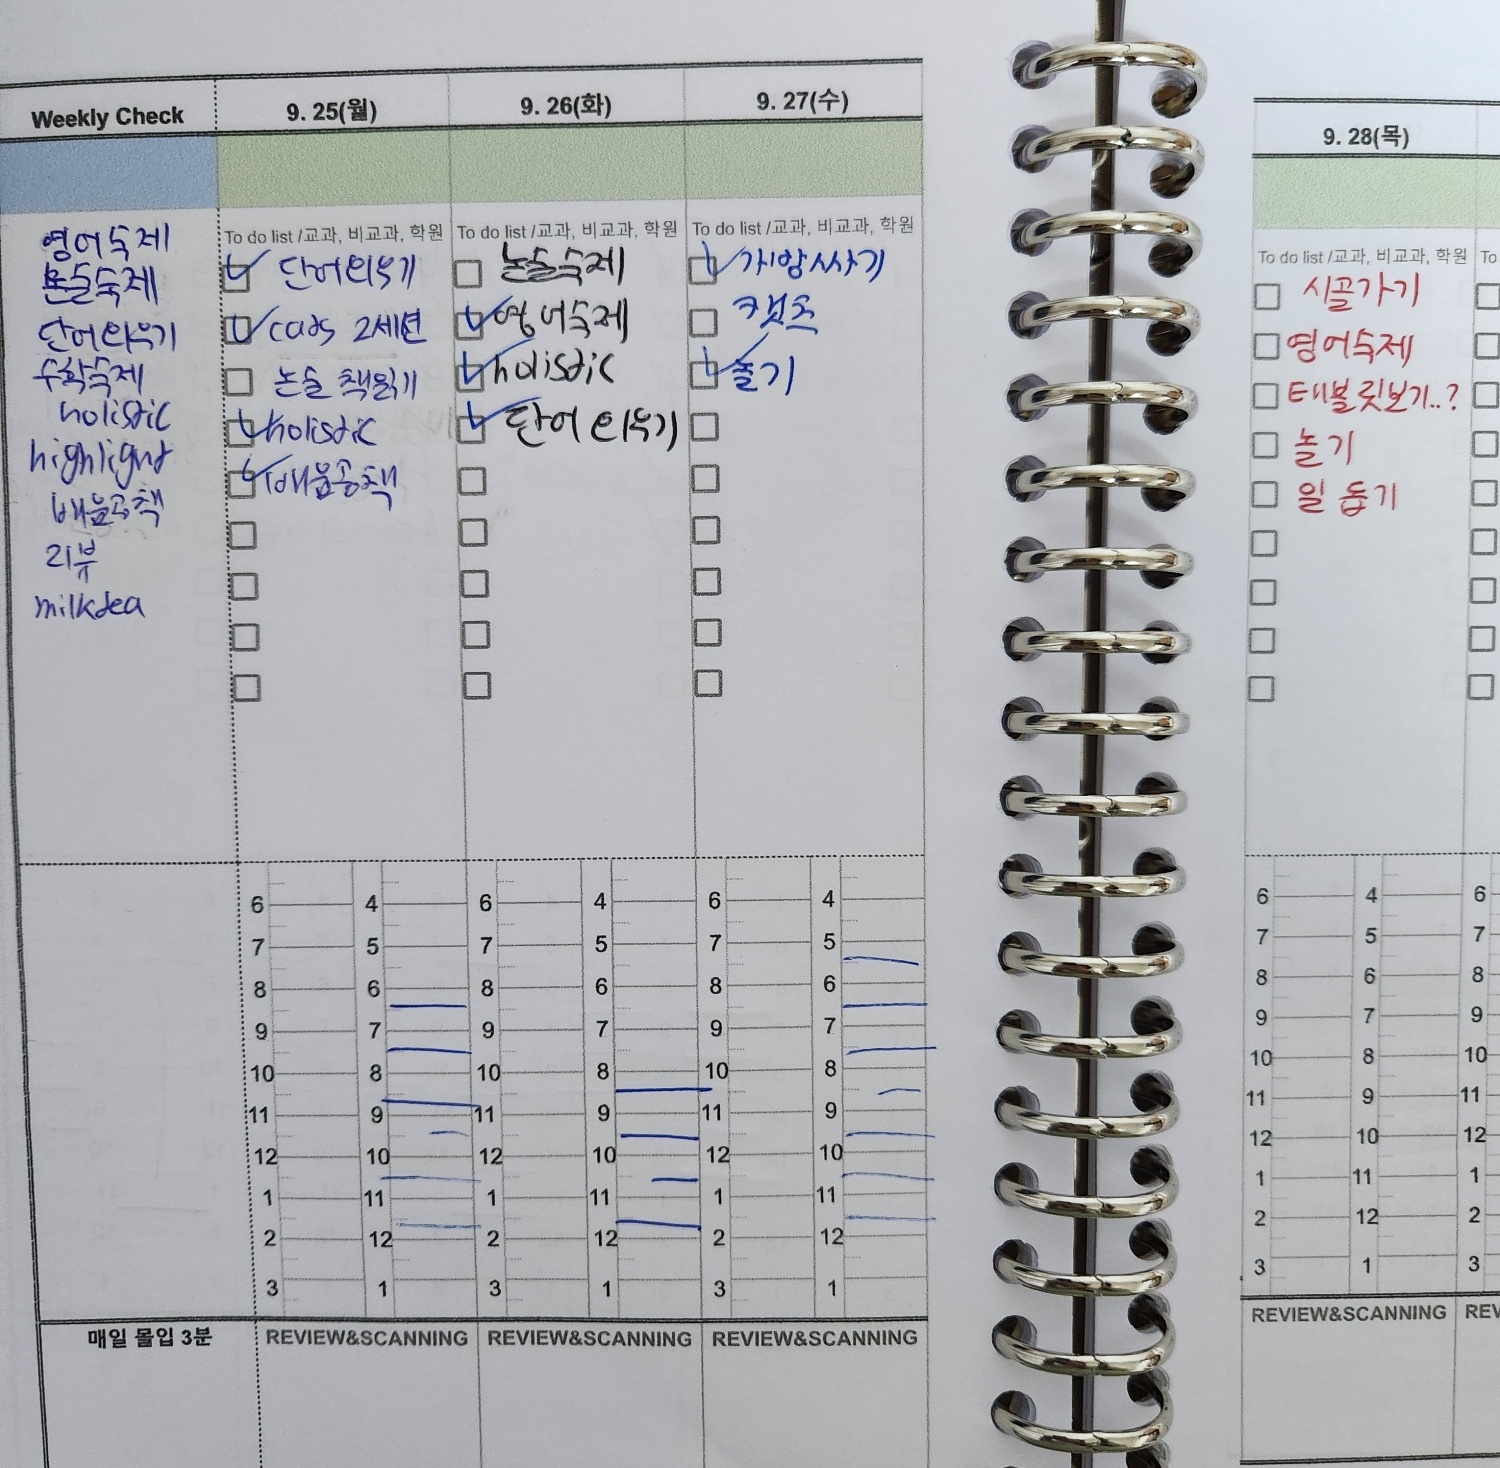 Weekly Check
9. 25(월)
9. 26(화)
9. 27(수)
영어숙제
논술숙제
단어외우기
수학숙제
holistic
highlight
배움공책
리뷰
milktea
To do list /교과, 비교과, 학원
단어외우기
cars 2세션
논술 책읽기
holistic
배움공책
To do list /교과, 비교과, 학원
논술숙제
영어숙제
holistic
단어 외우기
To do list /교과, 비교과, 학원
가방싸기
캣츠
놀기
6 4 6 4 6 4
7 5 7 5 7 5
8 6 8 6 8 6
9 7 9 7 9 7
10 8 10 8 10 8
11 9 11 9 11 9
12 10 12 10 12 10
1 11 1 11 1 11
2 12 2 12 2 12
3 1 3 1 3 1
매일 몰입 3분
REVIEW&SCANNING
REVIEW&SCANNING
REVIEW&SCANNING
9. 28(목)
To do list /교과, 비교과, 학원
To
시골가기
영어숙제
테블릿보기..?
놀기
일 돕기
6 4 6
7 5 7
8 6 8
9 7 9
10 8 10
11 9 11
12 10 12
1 11 1
2 12 2
3 1 3
REVIEW&SCANNING
REV